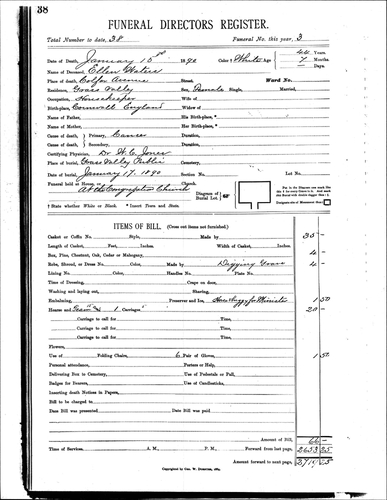 38
FUNERAL DIRECTORS REGISTER.
Total Number to date, 38 Funeral No. this year, 3
Date of Death, January 15th 1890 Color † White Age 44 Years
Name of Deceased, Ellen Waters 7 Months
Place of death, Colfax Avenue Street, Ward No. – Days
Residence, Grass Valley Sex, Female Single, Married,
Occupation, Housekeeper Wife of
Birth-place, Cornwall England Widow of
Name of Father, His Birth-place,
Name of Mother, Her Birth-place,
Cause of death, Primary, Cancer Duration,
Cause of death, Secondary, Duration,
Certifying Physician, Dr W. C. Jones Residence,
Place of burial, Grass Valley Public Cemetery,
Date of burial, January 17, 1890 Section No. Lot No.
Funeral held at House, or at Church At the Congregation Church
Diagram of Burial Lot.
† State whether White or Black. * Insert Trans and State.
ITEMS OF BILL. (Cross out items not furnished.)
Casket or Coffin No. Style, Made by 35 –
Length of Casket, Feet, Inches. Width of Casket, Inches.
Box, Pine, Chestnut, Oak, Cedar or Mahogany, 4 –
Robe, Shroud, or Dress No. Color, Made by Digging Grave 4 –
Lining No. Color, Handles No. Plate No.
Time of Dressing, Crape on door,
Washing and laying out, Shaving,
Embalming, Preserver and Ice, Horse & Buggy for Minister 1 50
Hearse and Team & 1 Carriages 20 –
Carriage to call for Time,
Carriage to call for Time,
Carriage to call for Time,
Flowers,
Use of Folding Chairs, 6 Pair of Gloves, 1 50
Personal attendance, Porters or Help,
Delivering Box in Cemetery, Use of Pedestals or Pall,
Badges for Bearers, Use of Candlesticks,
Inserting death Notices in Papers,
Bill to be charged to
Date Bill was presented Date Bill was paid
Amount of Bill, 66 –
Time of Services, A. M., P. M., Forward from last page, 2653 25
Amount forward to next page, 2719 25
Copyrighted by Geo. W.